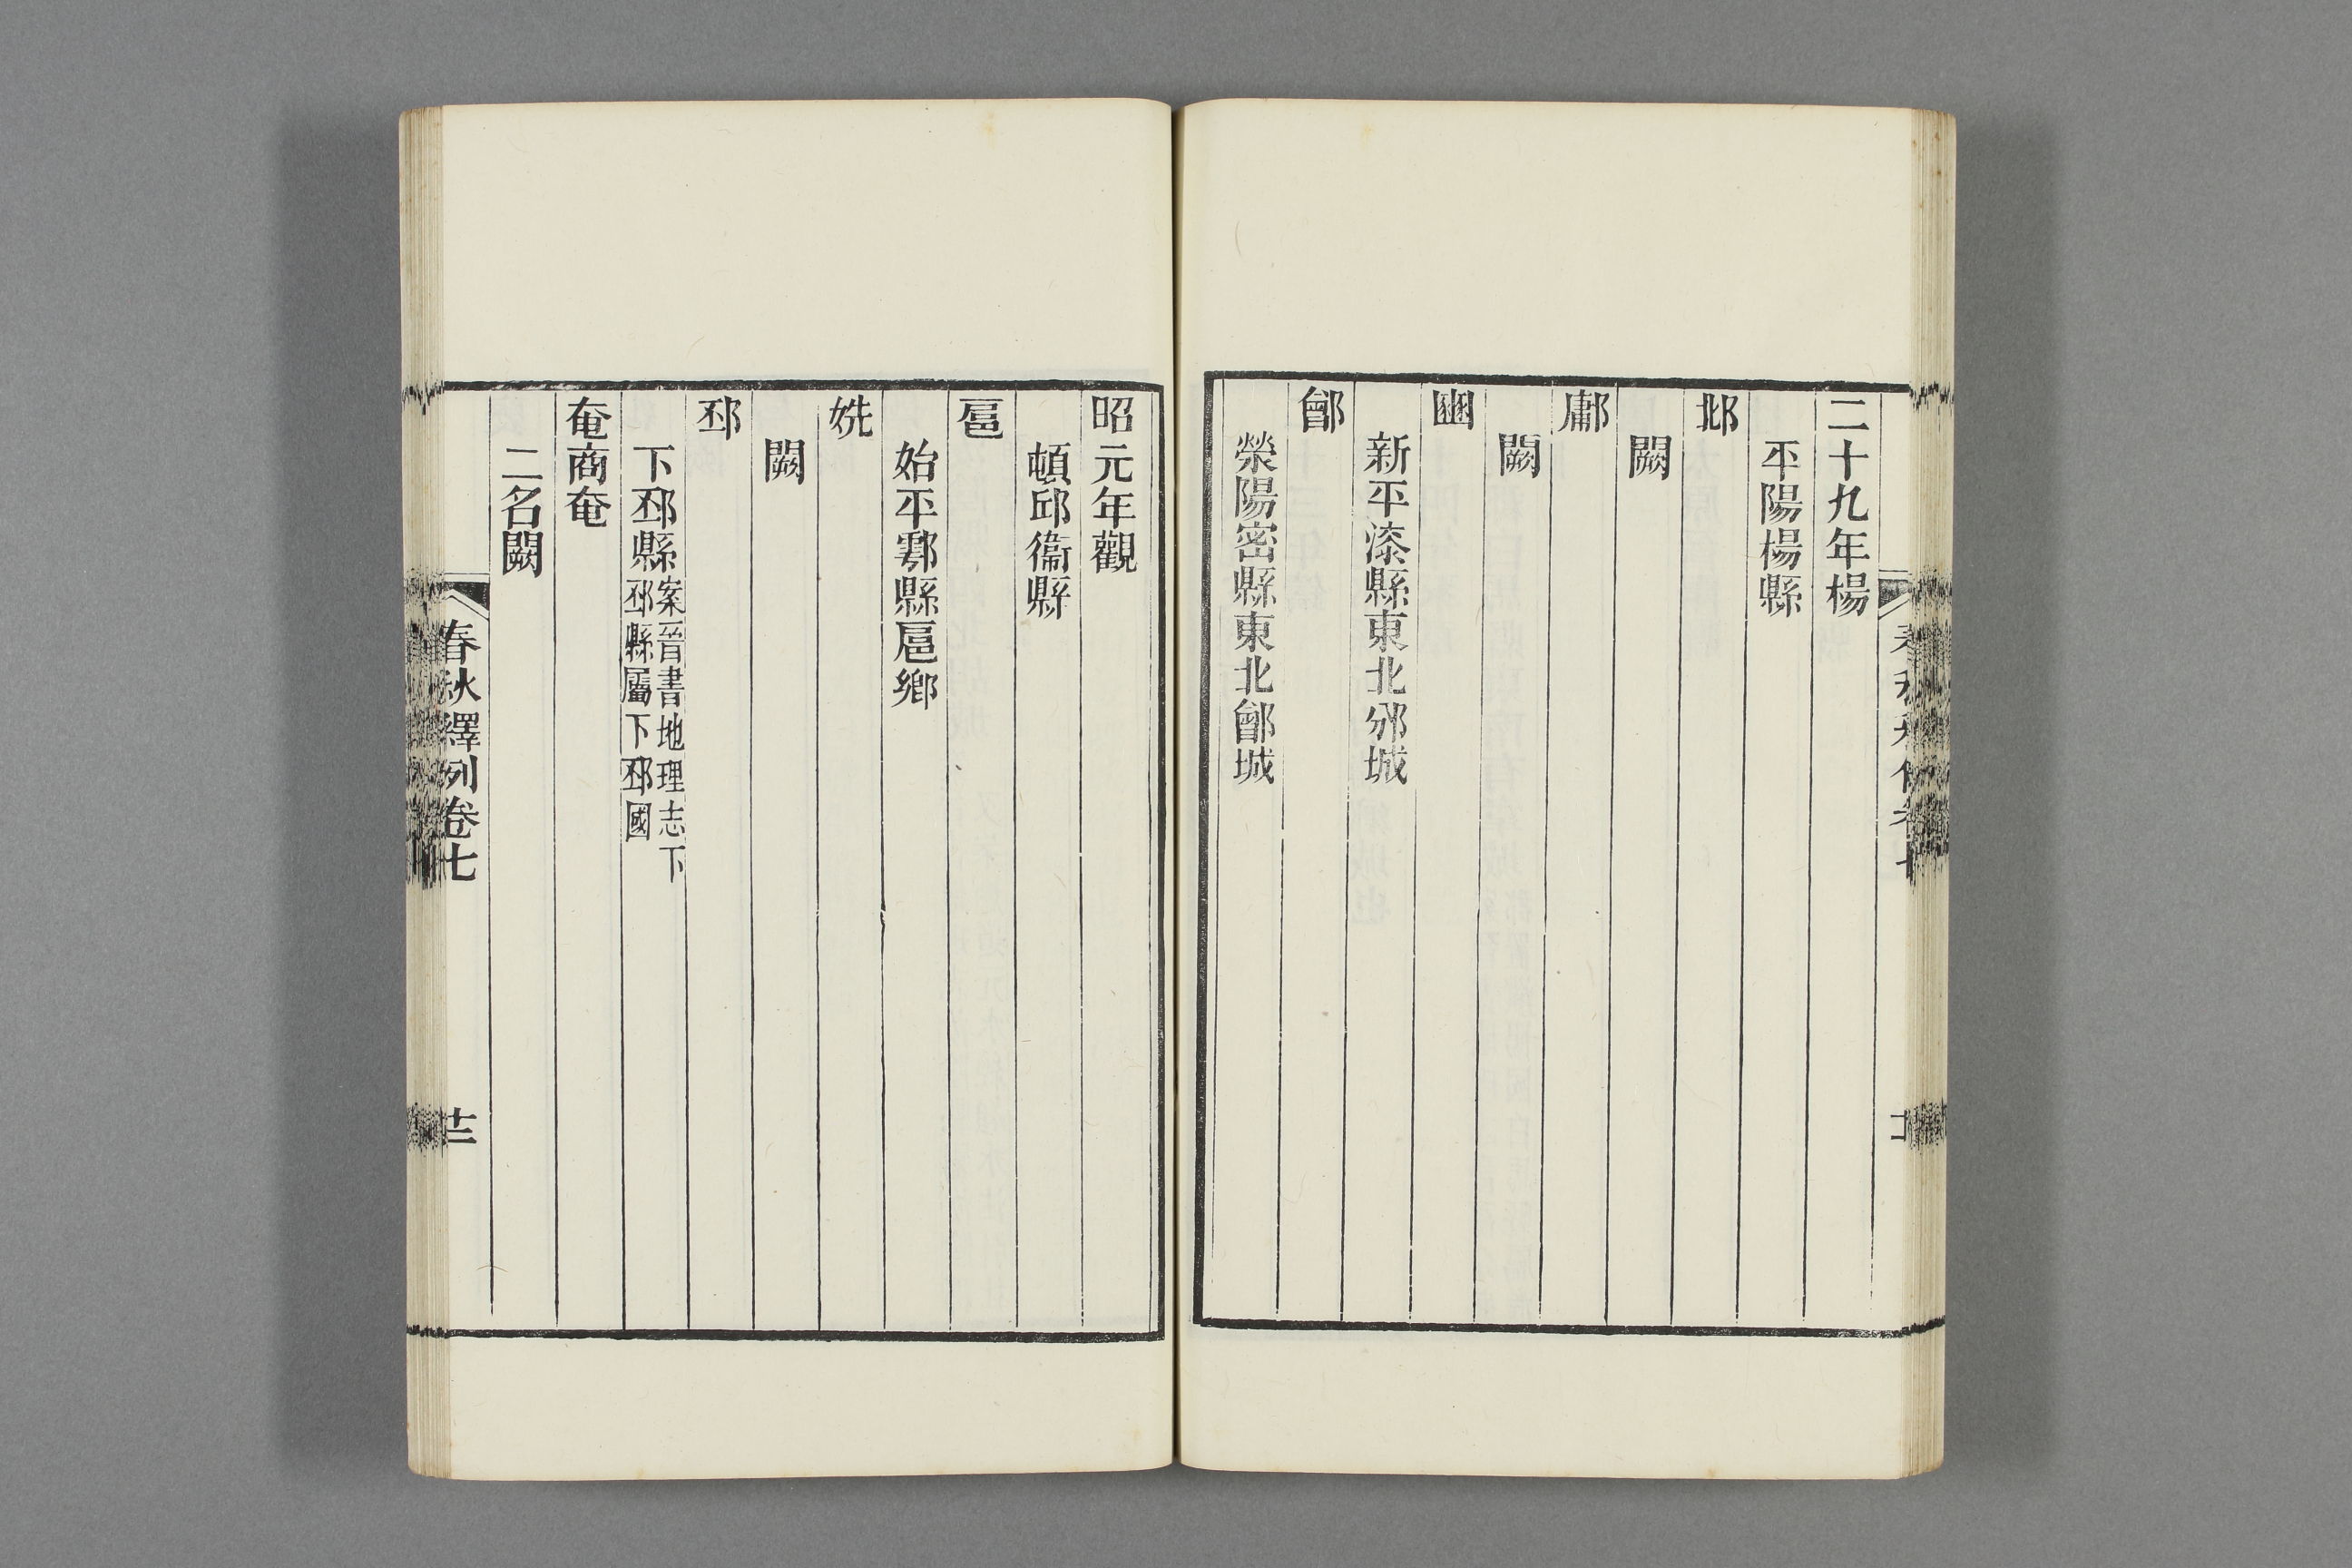 二十九年楊
平陽楊縣
邶
闕
鄘
闕
豳
新平漆縣東北邠城
鄶
滎陽密縣東北鄶城
昭元年觀
頓邱衞縣
扈
始平鄠縣扈鄉
姺
闕
邳
下邳縣案晉書地理志下
邳縣屬下邳國
奄商奄
二名闕
春秋釋例卷七